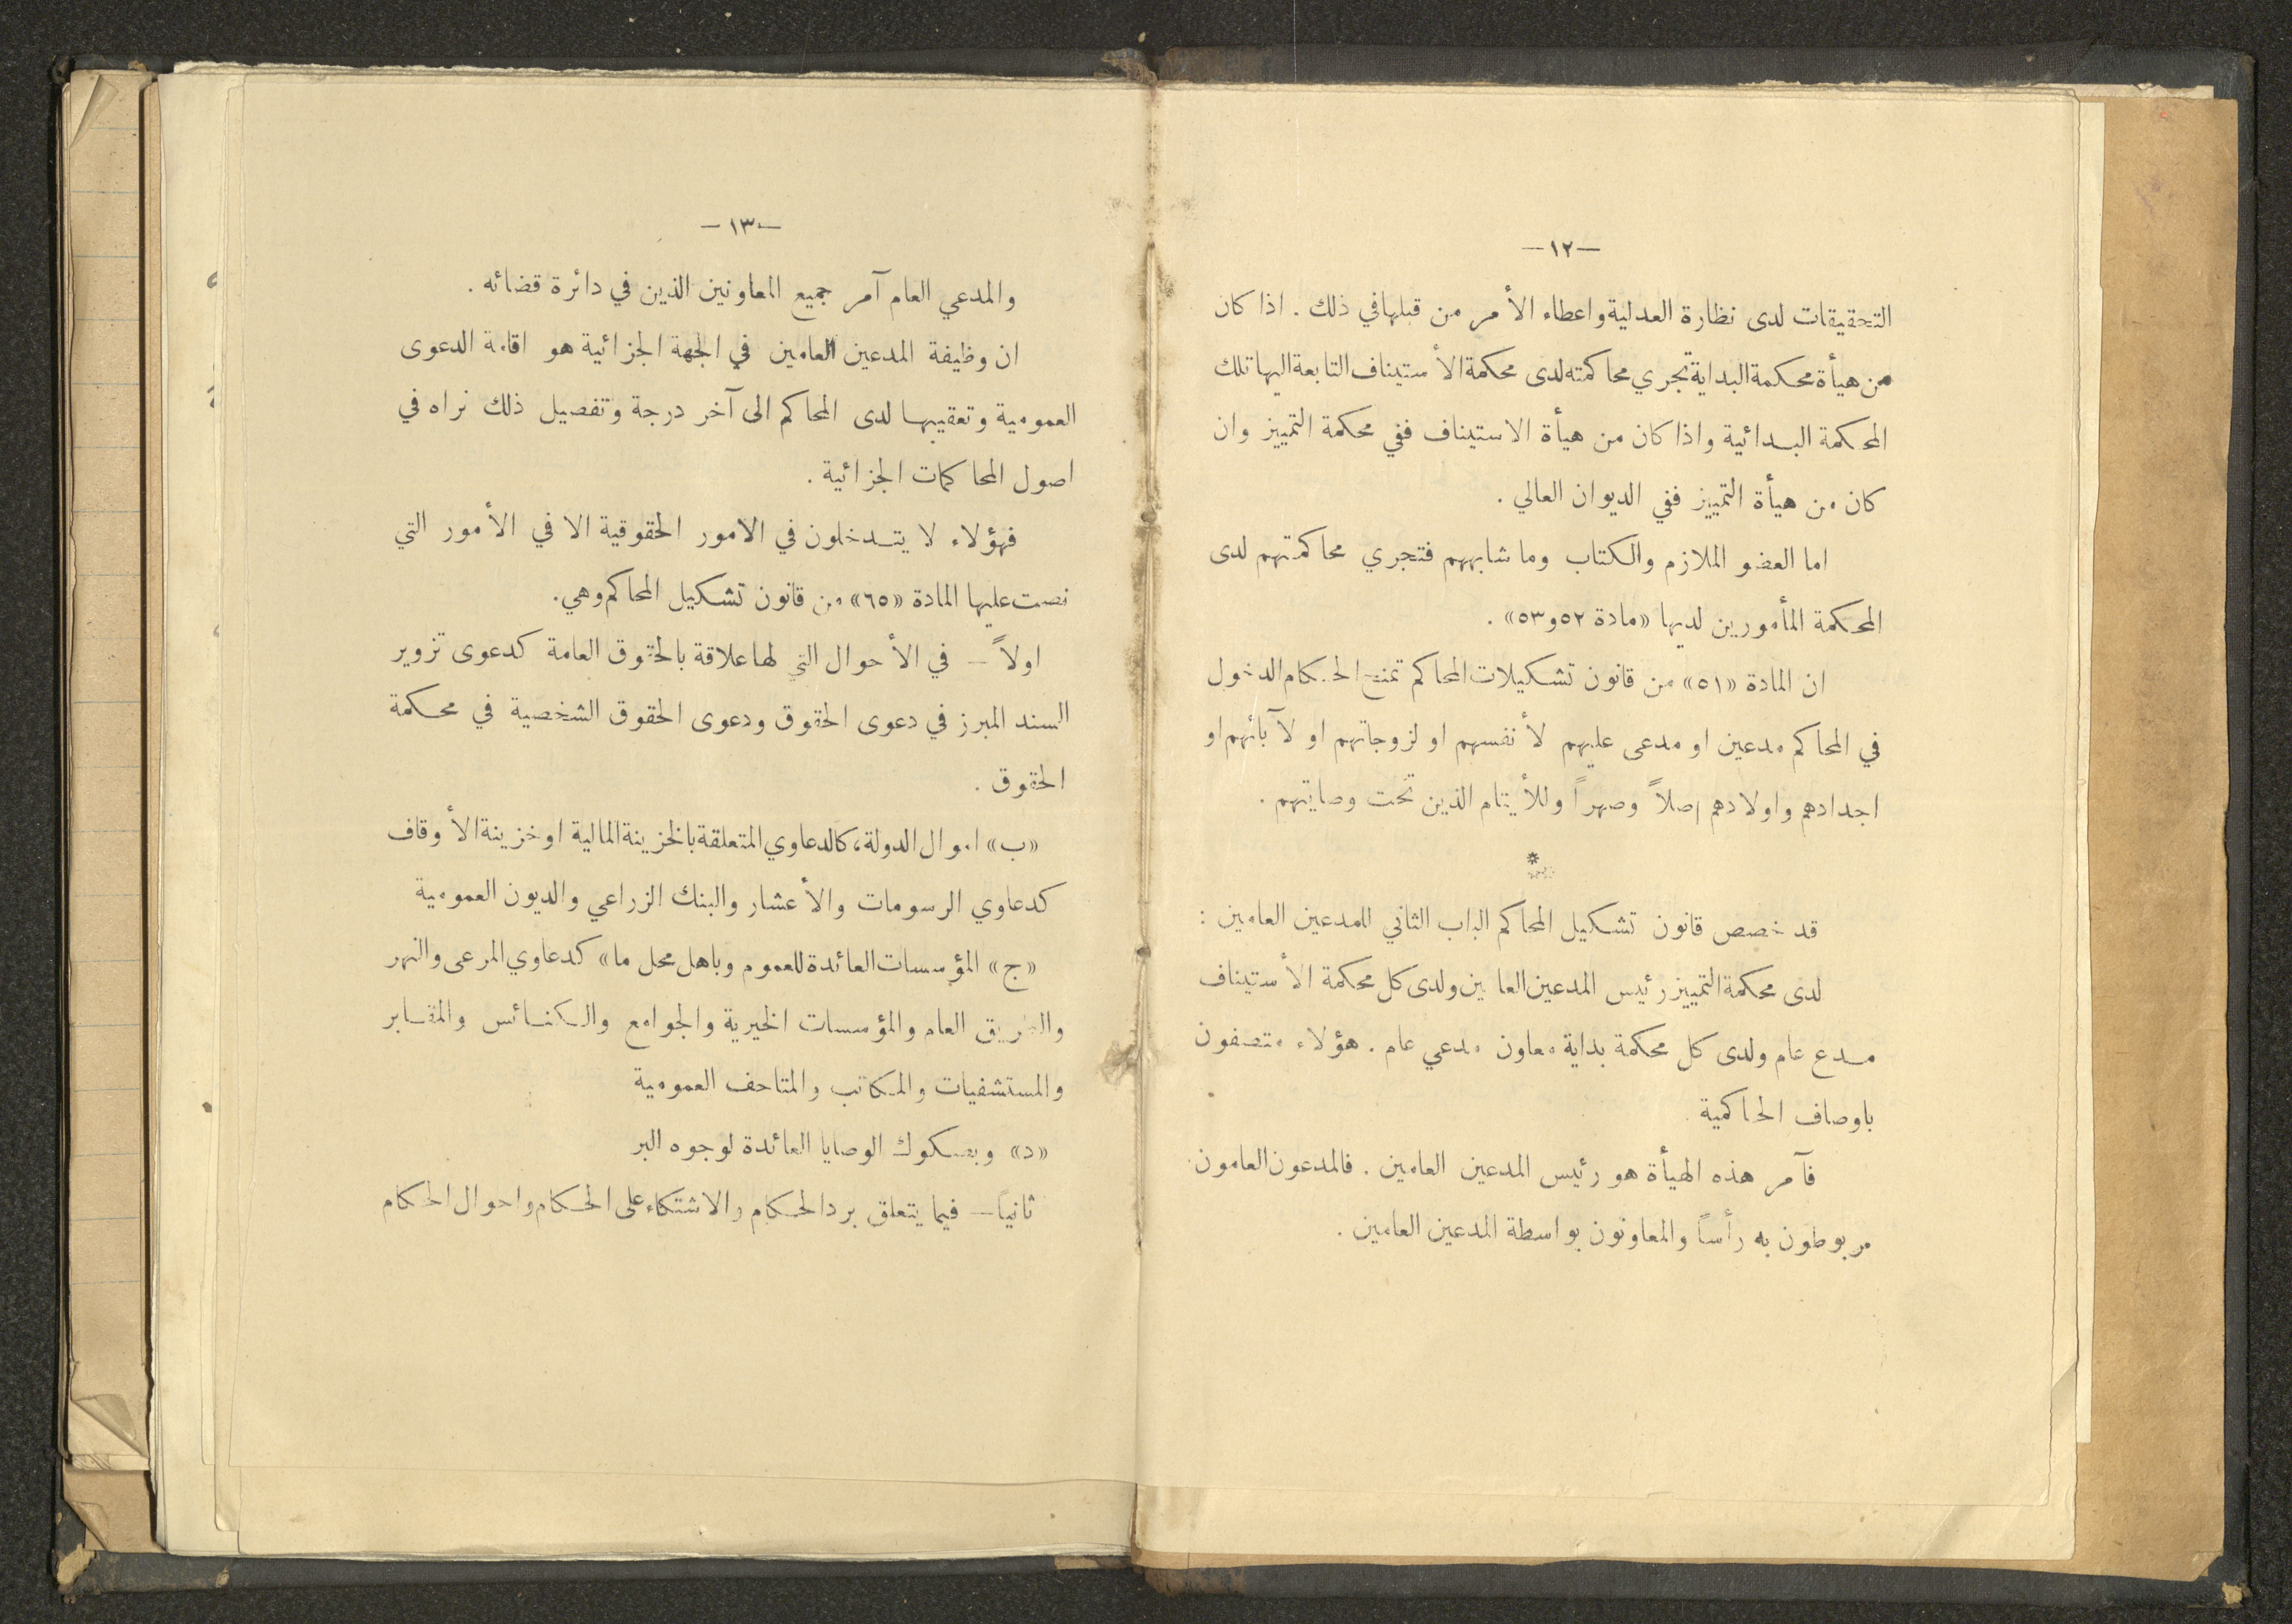 —١٢—
التحقيقات لدى نظارة العدلية واعطاء الأمر من قبلها في ذلك . اذا كان
من هيأة محكمة البداية تجري محاكمته لدى محكمة الأستيناف التابعة اليها تلك
المحكمة البدائية واذا كان من هيأة الاستيناف ففي محكمة التمييز وان
كان من هيأة التمييز ففي الديوان العالي .
اما العضو الملازم والكتاب وما شابههم فتجري محاكمتهم لدى
المحكمة المأمورين لديها «مادة ٥٢ و٥٣» .
ان المادة «٥١» من قانون تشكيلات المحاكم تمنح الحكام الدخول
في المحاكم مدعين او مدعى عليهم لأنفسهم او لزوجاتهم او لآبائهم او
اجدادهم واولادهم اصلاً وصهراً وللأيتام الذين تحت وصايتهم .
*
قد خصص قانون تشكيل المحاكم الباب الثاني للمدعين العامين :
لدى محكمة التمييز رئيس المدعين العامين ولدى كل محكمة الأستيناف
مدع عام ولدى كل محكمة بداية معاون مدعي عام . هؤلاء متصفون
باوصاف الحاكمية
فآمر هذه الهيأة هو رئيس المدعين العامين . فالمدعون العامون
مربوطون به رأساً والمعاونون بواسطة المدعين العامين .
—١٣—
والمدعي العام آمر جميع المعاونين الذين في دائرة قضائه .
ان وظيفة المدعين العامين في الجهة الجزائية هو اقامة الدعوى
العمومية وتعقيبها لدى المحاكم الى آخر درجة وتفصيل ذلك نراه في
اصول المحاكمات الجزائية .
فهؤلاء لا يتدخلون في الامور الحقوقية الا في الأمور التي
نصت عليها المادة «٦٥» من قانون تشكيل المحاكم وهي.
اولاً — في الأحوال التي لها علاقة بالحقوق العامة كدعوى تزوير
السند المبرز في دعوى الحقوق ودعوى الحقوق الشخصية في محكمة
الحقوق .
«ب» اموال الدولة، كالدعاوي المتعلقة بالخزينة المالية او خزينة الأوقاف
كدعاوي الرسومات والأعشار والبنك الزراعي والديون العمومية
«ج» المؤسسات العائدة للعموم وباهل محل ما» كدعاوي المرعى والنهر
والطريق العام والمؤسسات الخيرية والجوامع والكنائس والمقابر
والمستشفيات والمكاتب والمتاحف العمومية
«د» وبصكوك الوصايا العائدة لوجوه البر
ثانياً — فيما يتعلق برد الحكام والاشتكاء على الحكام واحوال الحكام